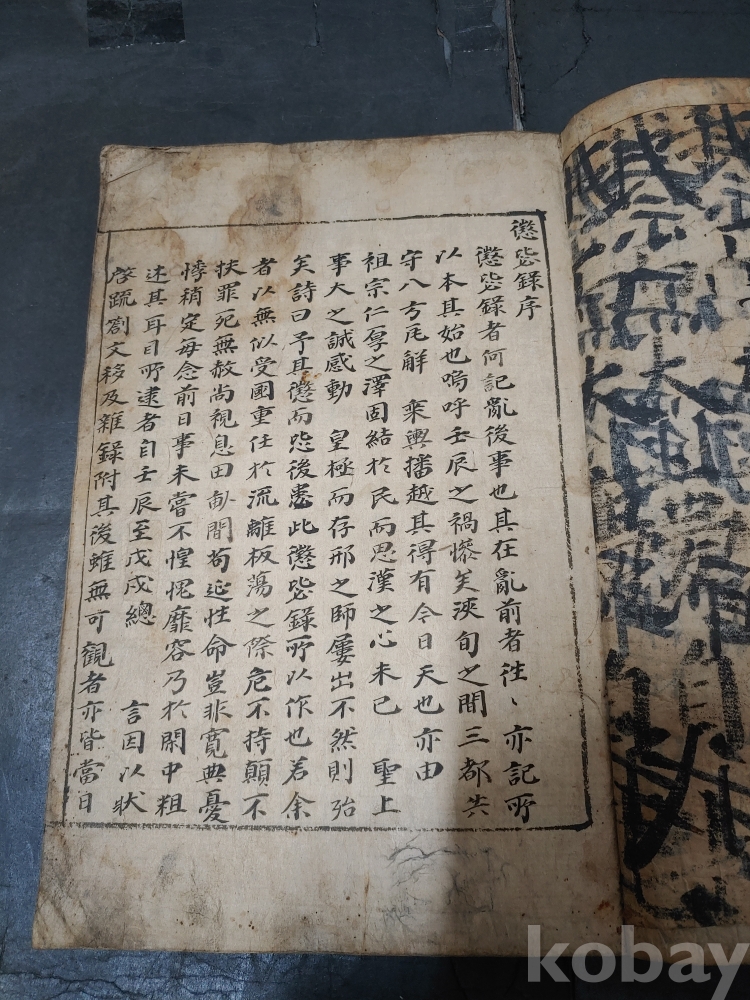 懲毖錄序
懲毖錄者何記亂後事也其在亂前者徃〻亦記所
以本其始也嗚呼壬辰之禍慘矣浹旬之間三都失
守八方瓦解 乘輿播越其得有今日天也亦由
祖宗仁厚之澤固結於民而思漢之心未已 聖上
事大之誠感動 皇極而存邢之師屢出不然則殆
矣詩曰予其懲而毖後患此懲毖錄所以作也若余
者以無似受國重任於流離板蕩之際危不持顛不
扶罪死無赦尚視息田畝間苟延性命豈非寬典憂
悸稍定每念前日事未嘗不惶愧靡容乃於閑中粗
述其耳目所逮者自壬辰至戊戌總 言因以狀
啓疏劄文移及雜錄附其後雖無可觀者亦皆當日
kobay